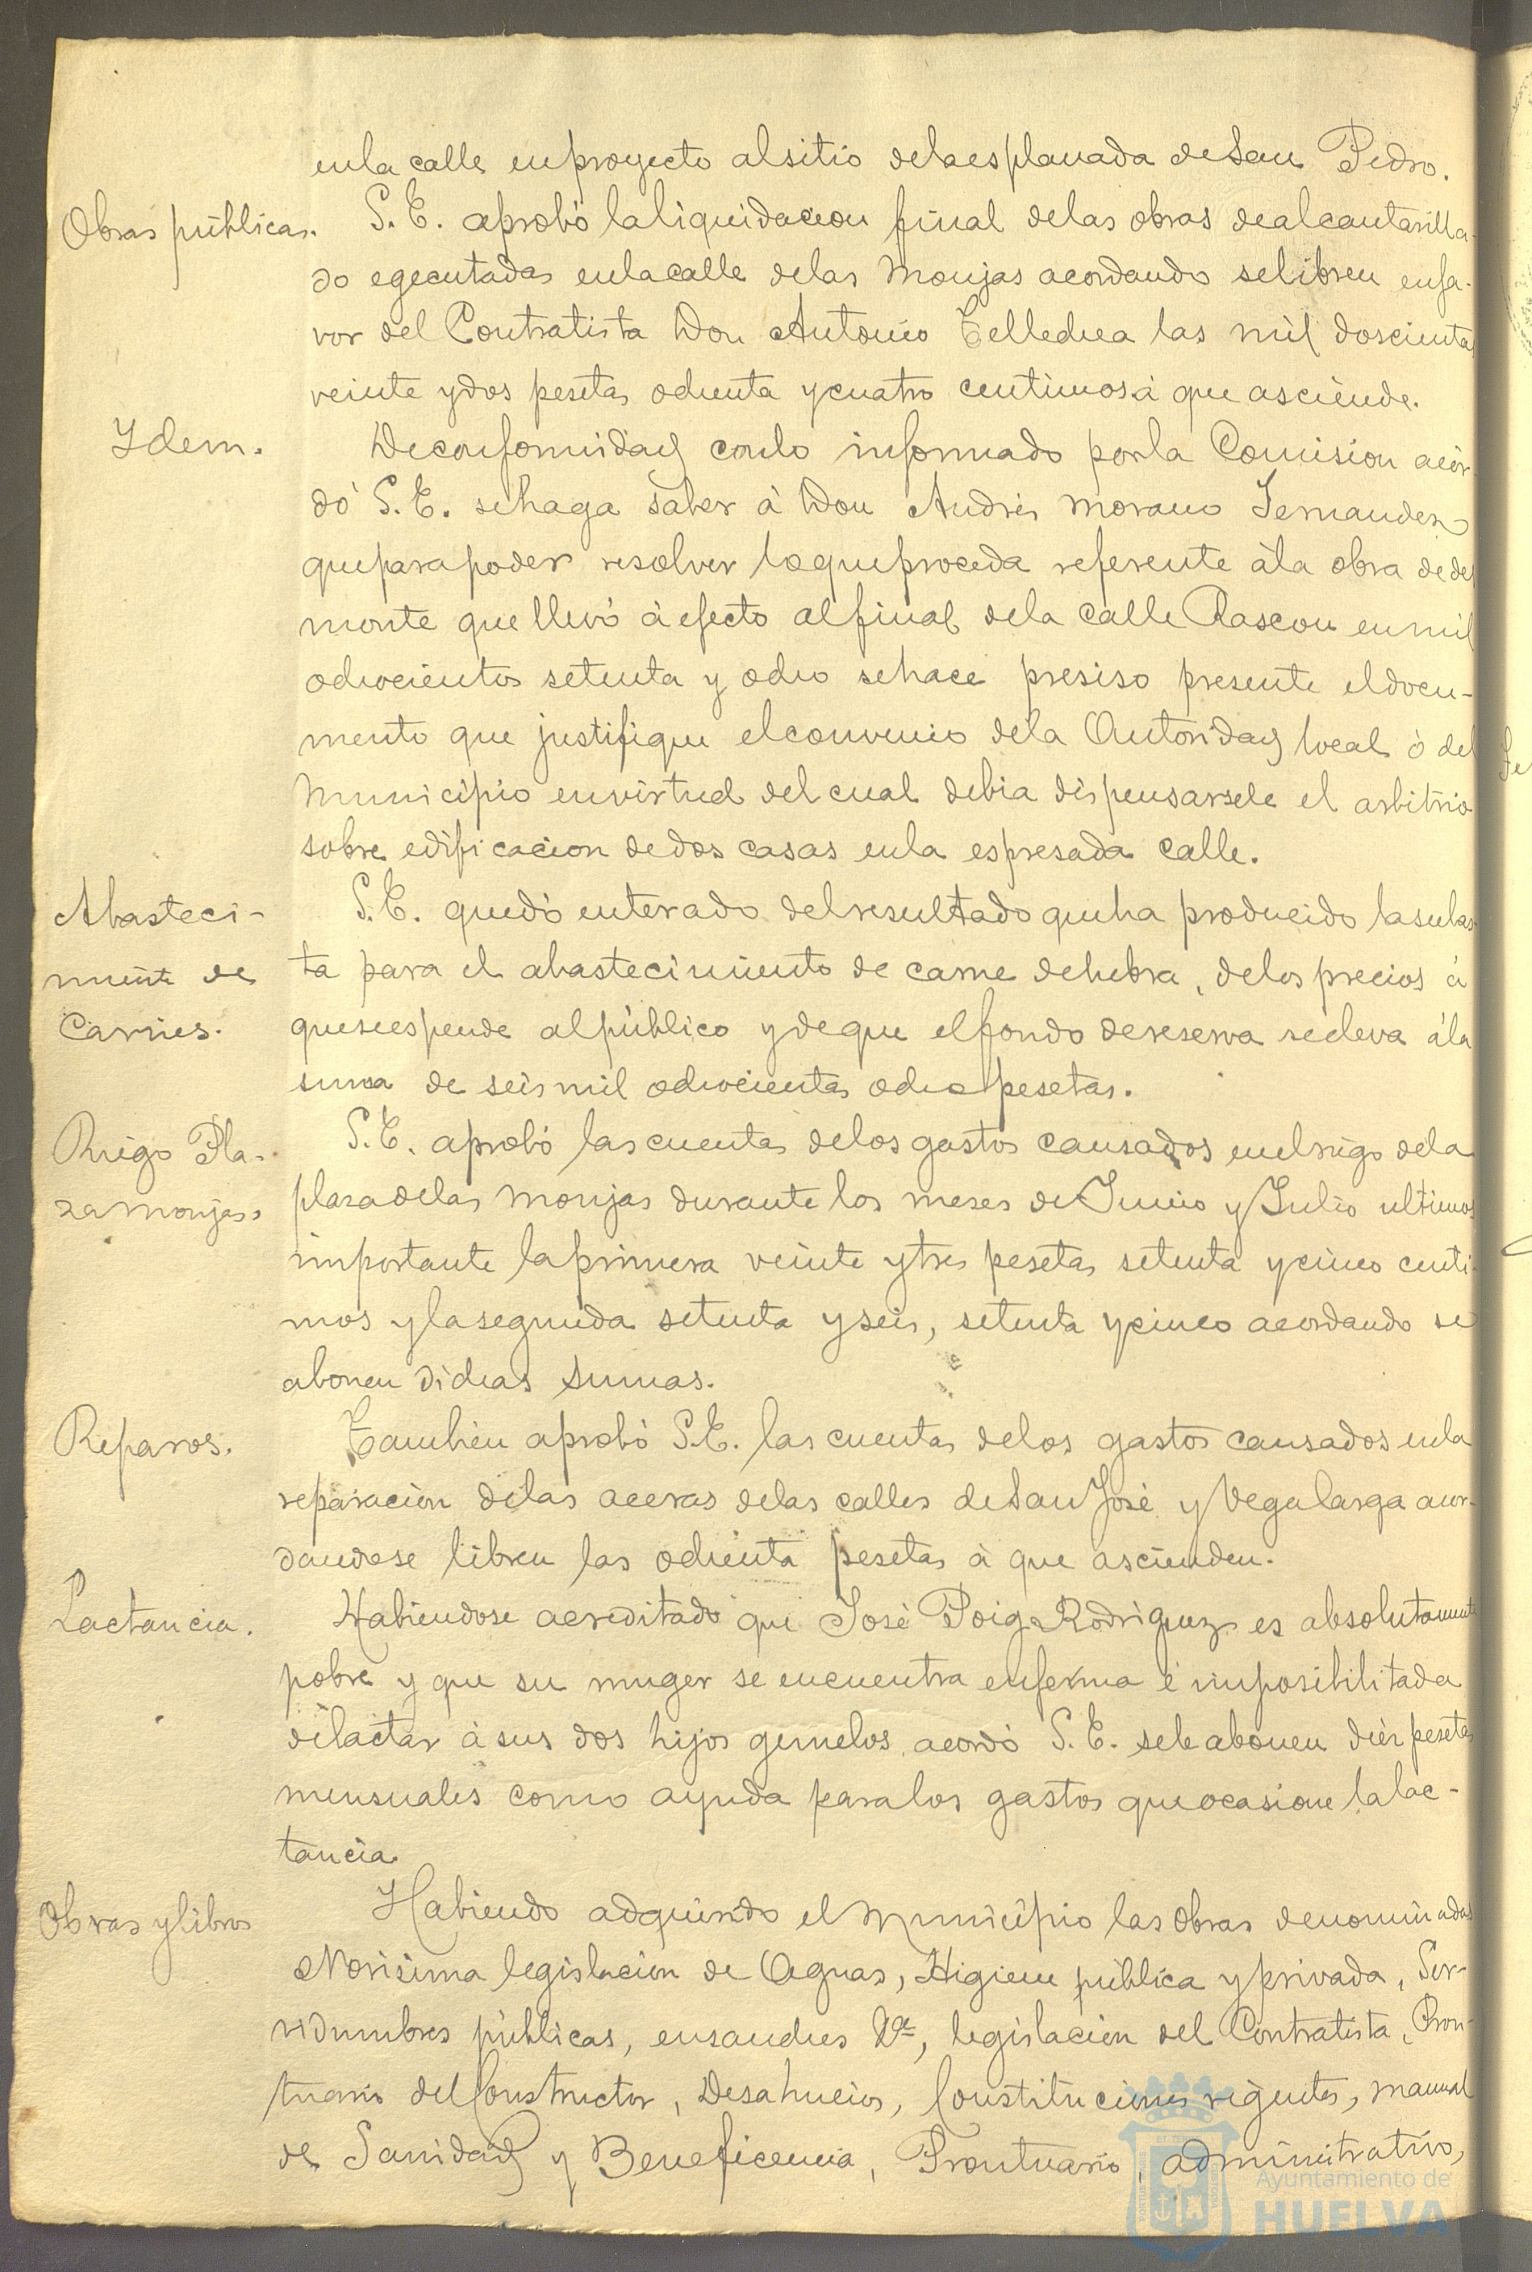 en la calle en proyecto al sitio de la esplanada de San Pedro.
Obras públicas. S. E. aprobó la liquidacion final de las obras de alcantarilla-
do egecutadas en la calle de las Monjas acordando se libren en fa-
vor del Contratista Don Antonio Tellechea las mil doscientas
veinte y dos pesetas ochenta y cuatro centimos á que asciende.
Ydem. De conformidad con lo informado por la Comision acor-
dó S. E. se haga saber á Don Andrés Morano Fernandez
que para poder resolver lo que proceda referente á la obra de des
monte que llevó á efecto al final de la calle Rascon en mil
ochocientos setenta y ocho se hace presiso presente el docu-
mento que justifique el convenio de la Autoridad local ó del
Municipio en virtud del cual debia dispensarsele el arbitrio
sobre edificacion de dos casas en la espresada calle.
Abasteci- S. E. quedó enterado del resultado que ha producido la subas-
miento de ta para el abastecimiento de carne de hebra, de los precios á
Carnes. que se espende al público y de que el fondo de reserva se eleva á la
suma de seis mil ochocientas ocho pesetas.
Riego Pla- S. E. aprobó las cuentas de los gastos causados en el riego de la
za Monjas. plaza de las Monjas durante los meses de Junio y Julio ultimos
importante la primera veinte y tres pesetas setenta y cinco centi-
mos y la segunda setenta y seis, setenta y cinco acordando se
abonen dichas sumas.
Reparos. Tambien aprobó S. E. las cuentas de los gastos causados en la
reparacion de las aceras de las calles de San José y Vega larga acor-
dandose libren las ochenta pesetas á que ascienden.
Lactancia. Habiendose acreditado que José Poig Rodriguez es absolutamente
pobre y que su muger se encuentra enferma é imposibilitada
de lactar á sus dos hijos gemelos, acordó S. E. se le abonen diez pesetas
mensuales como ayuda para los gastos que ocasione la lac-
tancia.
Obras y libros Habiendo adquirido el Municipio las obras denominadas
Novisima legislacion de Aguas, Higiene pública y privada, Ser-
vidumbres públicas, ensanches &ª, legislacion del Contratista, Pron-
tuario del Constructor, Desahucios, Constituciones vigentes, Manual
de Sanidad y Beneficencia, Prontuario administrativo,
Ayuntamiento de
HUELVA